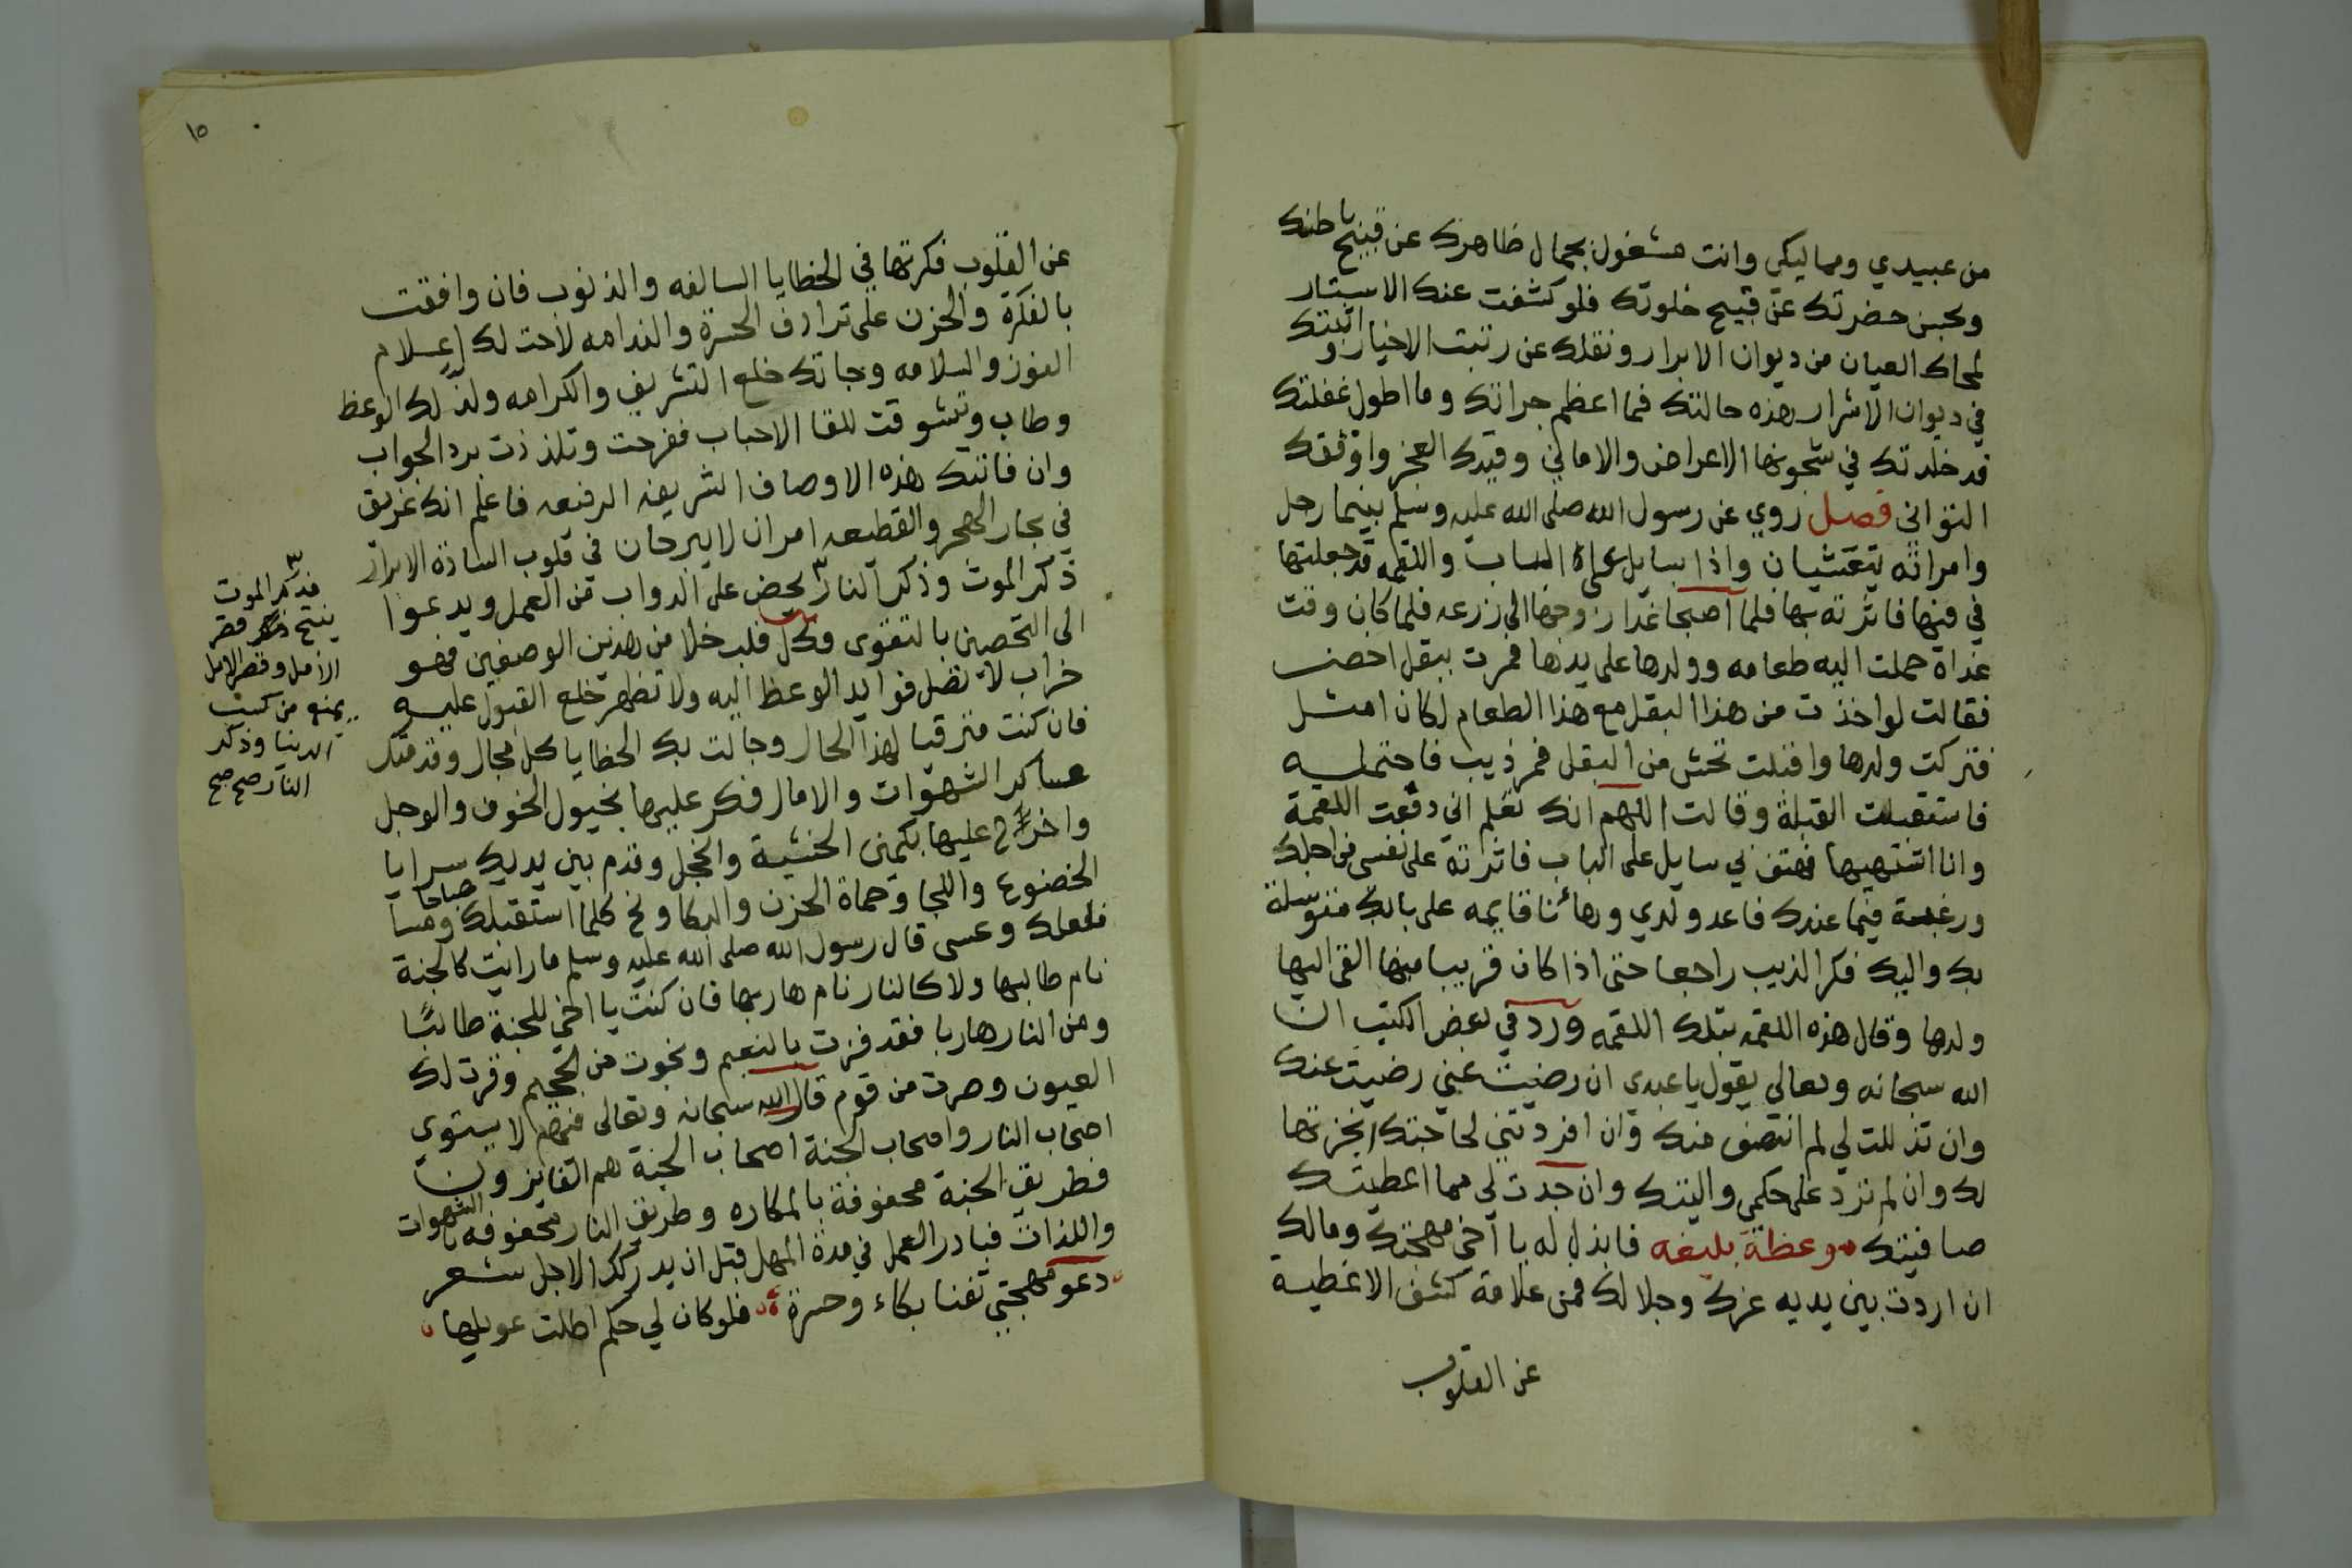 من عبيدي ومماليكي وانت مشغول بجمال ظاهرك عن قبيح باطنك
وبحسن حضرتك عن قبيح خلوتك فلو كشفت عنك الاستار
لمحاك العيان من ديوان الابرار ونقلك عن رتبت الاخيار واثبتك
في ديوان الاشرار هذه حالتك فما اعظم جراتك وما اطول غفلتك
قد خلدتك في سجونها الاعراض والاماني وقيدك العجز واوثقك
التواني فصل روي عن رسول الله صلى الله عليه وسلم بينما رجل
وامراته يتعشيان واذا بسايل على الباب واللقمه قد جعلتها
في فيها فاثرته بها فلما اصبحا غدا زوجها الى زرعه فلما كان وقت
غداة حملت اليه طعامه وولدها على يدها فمرت ببقل اخضر
فقالت لو اخذت من هذا البقل مع هذا الطعام لكان امثل
فتركت ولدها واقبلت تحش من البقل فمر ذيب فاحتمله
فاستقبلت القبلة وقالت اللهم انك تعلم اني دفعت اللقمة
وانا اشتهيها فهتف بي سايل على الباب فاثرته على نفسي من اجلك
ورغبة فيما عندك فاعد ولدي وها انا قايمه على بابك متوسلة
بك واليك فكر الذيب راجعا حتى اذا كان قريبا منها القى اليها
ولدها وقال هذه اللقمه بتلك اللقمه ورد في بعض الكتب ان
الله سبحانه وتعالى يقول يا عبدي ان رضيت عني رضيت عنك
وان تذللت لي لم انتصف منك وان افردتني لحاجتك انجزتها
لك وان لم ترد على حكمي واليتك وان جدت لي مما اعطيتك
صافيتك موعظة بليغه فابذل له يا اخي مهجتك ومالك
ان اردت بين يديه عزك وجلالك فمن علامة كشف الاغطية
عن القلوب
١٥
عن القلوب فكرتها في الخطايا السالفه والذنوب فان وافقت
بالفكرة والحزن على ترادف الحسرة والندامه لاحت لك اعلام
الفوز والسلامه وجاتك خلع التشريف والكرامه ولذ لك الوعظ
وطاب وتشوقت للقا الاحباب ففرحت وتلذذت برد الجواب
وان فاتتك هذه الاوصاف الشريفه الرفيعه فاعلم انك غريق
في بحار الهجر والقطيعه امران لا يبرحان في قلوب السادة الابرار
ذكر الموت وذكر النار يحض على الدواب من العمل ويدعوا
الى التحصين بالتقوى وكل قلب خلا من هذين الوصفين فهو
خراب لا تصل فوايد الوعظ اليه ولا تظهر خلع القبول عليه
فان كنت مترقبا لهذا الحال وجالت بك الخطايا كل مجال وقدمتك
عساكر الشهوات والامال فكر عليها بخيول الخوف والوجل
واخرج عليها بكمين الخشية والخجل وقدم بين يديك سرايا
الخضوع واللجا وحماة الحزن والبكا ونح كلما استقبلك صباحا ومسا
فلعلك وعسى قال رسول الله صلى الله عليه وسلم ما رايت كالجنة
نام طالبها ولا كالنار نام هاربها فان كنت يا اخي للجنة طالبًا
ومن النار هاربا فقد فزت بالنعيم ونجوت من الجحيم وقرت لك
العيون وصرت من قوم قال الله سبحانه وتعالى فيهم لا يستوي
اصحاب النار واصحاب الجنة اصحاب الجنة هم الفايزون
فطريق الجنة محفوفة بالمكاره وطريق النار محفوفه بالشهوات
واللذات فبادر العمل في مدة المهل قبل ان يدركك الاجل شعر
دعو مهجتي تفنا بكاء وحسرة فلو كان لي حكم اطلت عويلها
فذكر الموت
ينتج قصر
الامل وقصر الامل
يمنع من كسب
الدنيا وذكر
النار صح صح